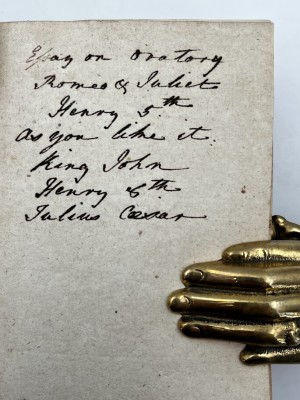 Eſsay on Oratory
Romeo & Juliet
Henry 5th
As you like it.
King John
Henry 6th
Julius Cæsar